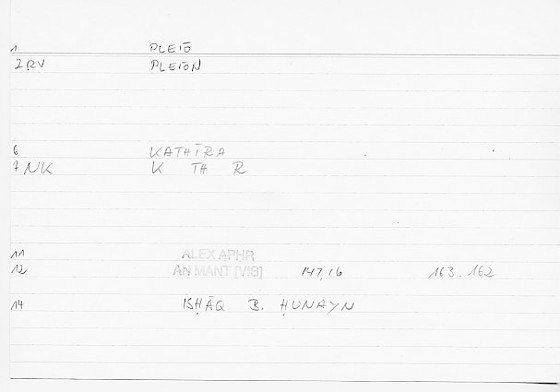 1 PLEIŌ
2RV PLEIŌN
6 KATHĪRA
7 NK K TH R
11 ALEX APHR
12 AN MANT [VIS] 147,16 163.162
14 ISḤĀQ B. ḤUNAYN